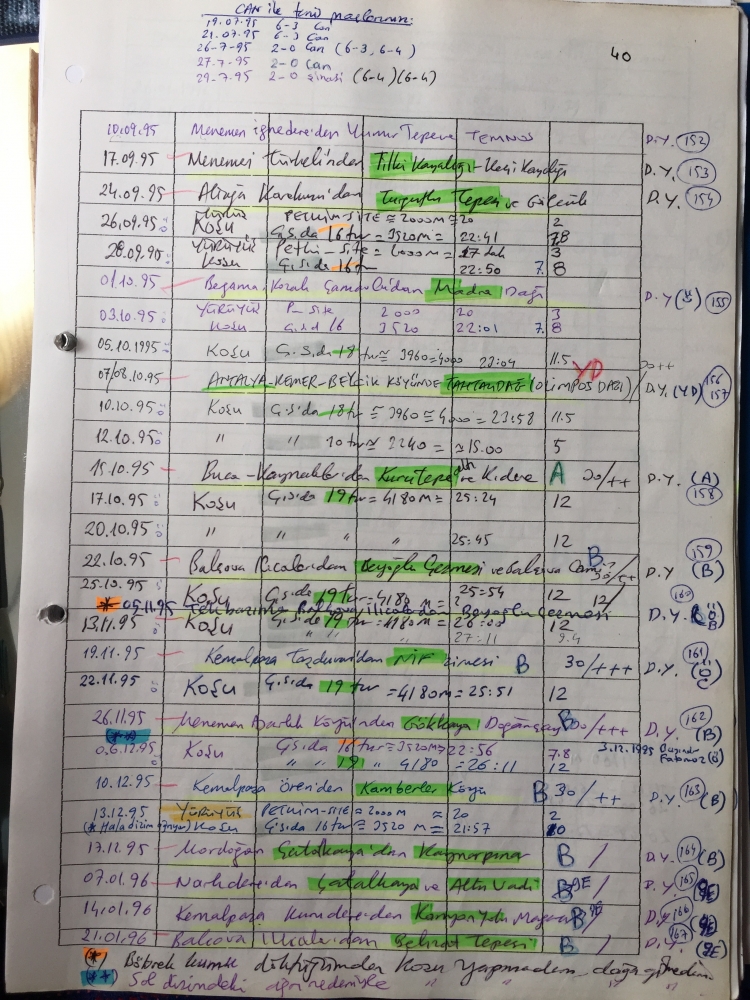 CAN ile tenis maçlarımız:
19.07.95 6-3 Can
21.07.95 6-3 Can
26-7-95 2-0 Can (6-3, 6-4)
27.7-95 2-0 Can
29-7.95 2-0 Şinasi (6-4)(6-4)
40
10.09.95 Menemen iğnedereden Yamanlar Tepene TEMNOS D.Y. 152
17.09.95 Menemen Türkeli'nden Tilki Kayalığı - Keçi Kayalığı D.Y. 153
24.09.95 Aliağa Karakuzu'dan Turgutlu Tepesi ve Gölcük D.Y. 154
26.09.95 Yürüyüş PETKİM-SITE ≅ 2000M ≅ 20 2
Koşu G.S.da 16 tur = 3520M = 22:41 7.8
28.09.95 Yürüyüş Petkim - Site = 2000M = 17 dak 3
Koşu G.S.da 16 tur 22:50 7.8
01/10.95 Bergama, Kozak Çamavlu'dan Madra Dağı D.Y (B) 155
03.10.95 Yürüyüş P- site 2000 20 3
Koşu G.S.d 16 3520 22:01 7.8
05.10.1995 Koşu G.S.da 18 tur ≅ 3960 ≅ 4000 22:04 11.5
07/08.10.95 ANTALYA-KEMER-BEYCİK KÖYÜNDEN TAHTALIDAĞ (OLİMPOS DAĞI) YD 30++ D.Y. (YD) 156 157
10.10.95 Koşu G.S.da 18 tur ≅ 3960 ≅ 4000 = 23:58 11.5
12.10.95 " " 10 tur ≅ 2240 = ≅ 15.00 5
15.10.95 Buca - Kaynaklar'dan Kurutepe ve Kıdere A 30/++ D.Y. (A) 158
17.10.95 Koşu G.S.da 19 tur = 4180M = 25:24 12
20.10.95 " " " " 25:45 12
22.10.95 Balçova Ilıcaları'dan Beyoğlu Çeşmesi ve Balçova Cami B D.Y (B) 159
25.10.95 Koşu G.S.da 19 tur = 4180M = 25:54 12
* 05.11.95 Teleferik Balçova Ilıcalardan Beyoğlu Çeşmesi 12/ D.Y. 160
13.11.95 Koşu G.S.da 19 tur = 4180M = 26:00 12
" " " 27:11 9.4
19.11.95 Kemalpaşa Tozduman'dan NİF zirvesi B 30/+++ D.Y. 161
22.11.95 Koşu G.S.da 19 tur = 4180M = 25:51 12
26.11.95 Menemen Bartlı Köyü'nden Gökkaya Doğançay B 30/+++ D.Y. 162 (B)
**
06.12.95 Koşu G.S.da 16 tur = 3520M = 22:56 7.8 3.12.1995
" " 19 " 4180 = 26:11 12
10.12.95 Kemalpaşa Ören'den Kamberler Köyü B 30/++ D.Y. 163 (B)
13.12.95 Yürüyüş PETKİM-SITE ≅ 2000M ≅ 20 2
(* Hala dizim ağrıyor) Koşu G.S.da 16 tur ≅ 3520 M = 21:57 10
17.12.95 Mordoğan Çatalkaya'dan Kaynarpınar B / D.Y. 164 (B)
07.01.96 Narlıdere'den Çatalkaya ve Altın Vadi D.Y. 165
14.01.96 Kemalpaşa Kurudere'den D.Y. 166
21.01.96 Balçova Ilıcaları'dan Behzat Tepesi B / D.Y. 167
(*) Böbrek kumu döktüğümden koşu yapmadım, dağa gitmedim
(**) Sol dizimdeki ağrı nedeniyle " " "